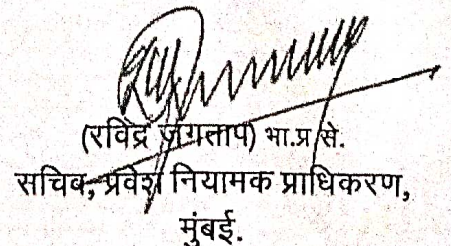 (रविंद्र जगताप) भा.प्र.से.
सचिव, प्रवेश नियामक प्राधिकरण,
मुंबई.